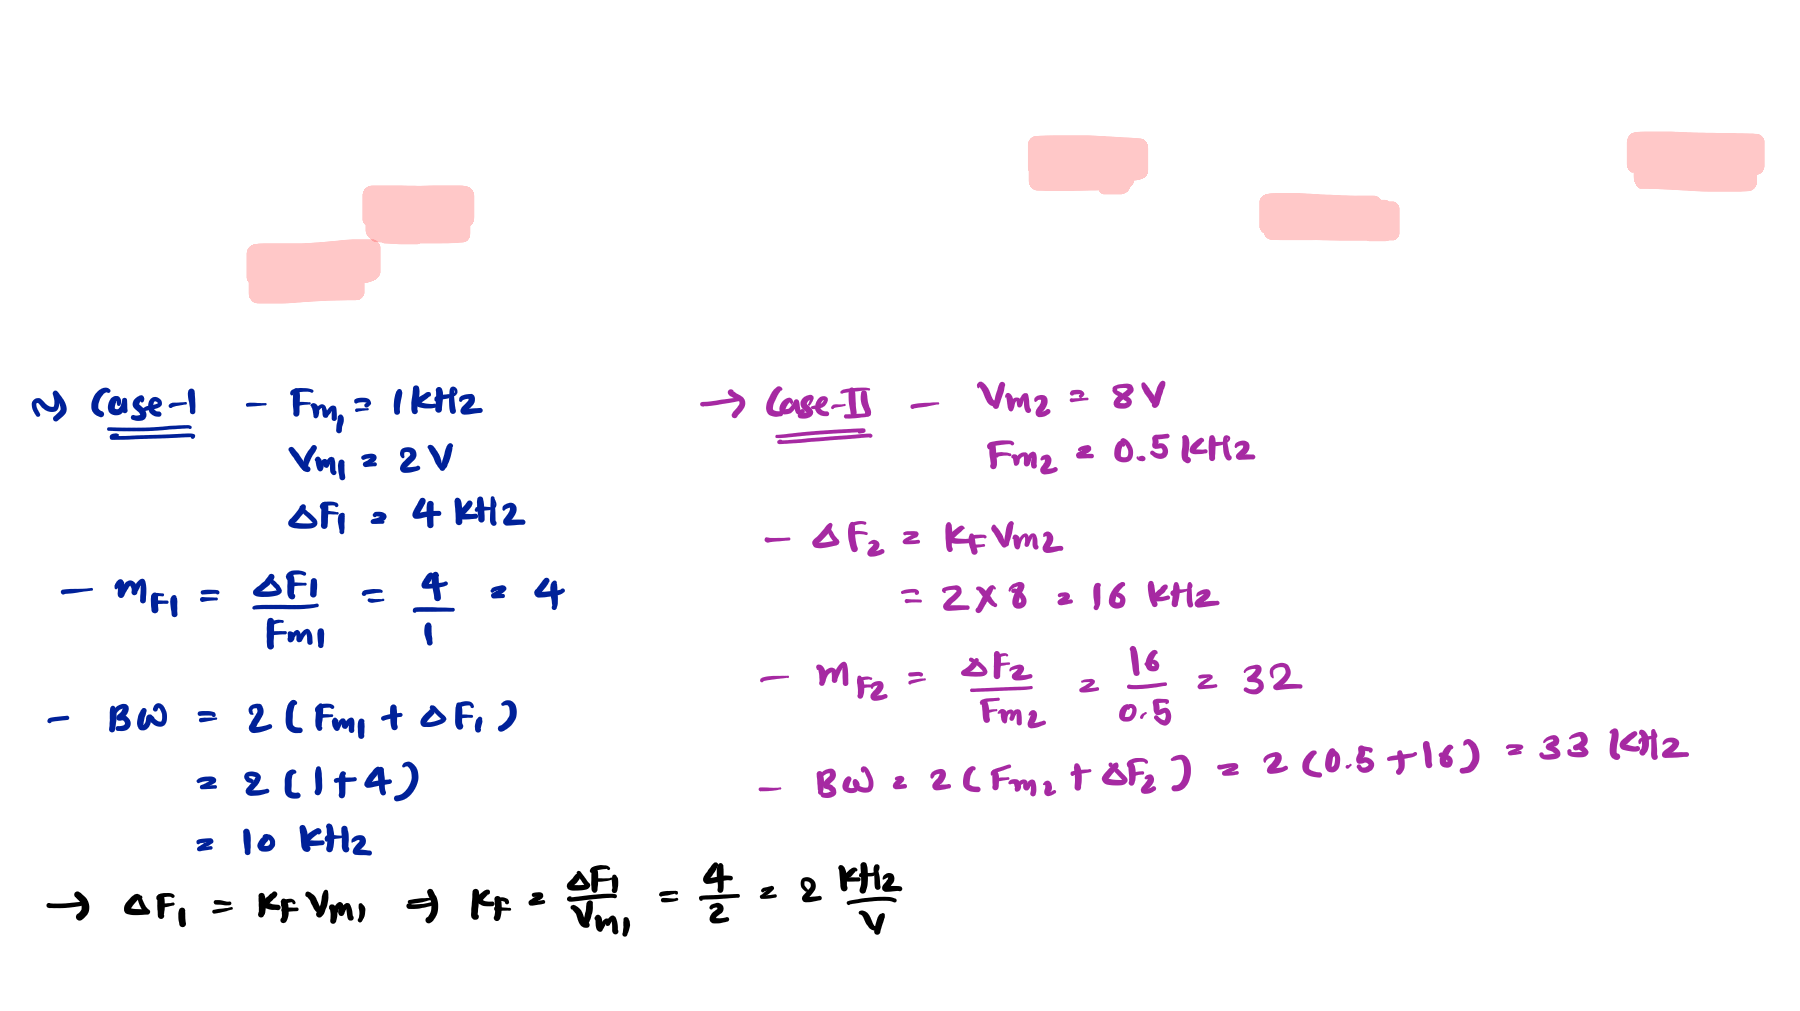 ~> Case-1 - Fm1 = 1 KHz
Vm1 = 2 V
ΔF1 = 4 KHz
- mF1 = ΔF1/Fm1 = 4/1 = 4
- BW = 2 ( Fm1 + ΔF1 )
= 2 ( 1 + 4 )
= 10 KHz
→ ΔF1 = KF Vm1 ⇒ KF = ΔF1/Vm1 = 4/2 = 2 KHz/V
→ Case-II - Vm2 = 8 V
Fm2 = 0.5 KHz
- ΔF2 = KF Vm2
= 2 X 8 = 16 KHz
- mF2 = ΔF2/Fm2 = 16/0.5 = 32
- BW = 2 ( Fm2 + ΔF2 ) = 2 ( 0.5 + 16 ) = 33 KHz